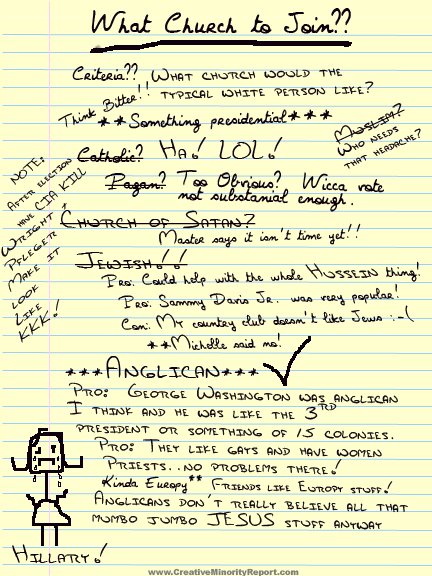 What Church to Join??
Criteria?? What church would the
typical white person like?
Think Bitter!!
**Something presidential***
Muslim?
Who needs
that headache?
Catholic? Ha! LOL!
Pagan? Too Obvious? Wicca vote
not substanial enough.
Church of Satan?
Master says it isn't time yet!!
Note:
After election
have CIA kill
Wright &
Pfleger
Make it
look
like
KKK!
Jewish!!
Pro: Could help with the whole Hussein thing!
Pro: Sammy Davis Jr. was very popular!
Con: My country club doesn't like Jews :-(
**Michelle said no!
***Anglican*** ✓
Pro: George Washington was anglican
I think and he was like the 3rd
president or something of 15 colonies.
Pro: They like gays and have women
priests..no problems there!
Kinda Europy** Friends like Europy stuff!
Anglicans don't really believe all that
mumbo jumbo JESUS stuff anyway
Hillary!
www.CreativeMinorityReport.com